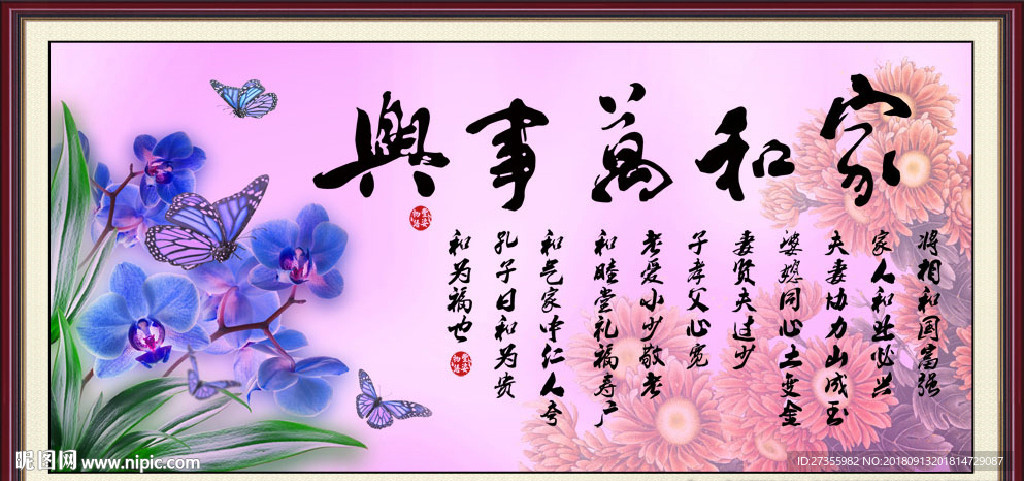 家和萬事興
将相和国富强
家人和业必兴
夫妻协力山成玉
婆媳同心土变金
妻贤夫过少
子孝父心宽
老爱小少敬老
和睦堂礼福寿广
和气家中仁人夸
孔子曰和为贵
和为福也
昵图网 www.nipic.com
ID:27355982 NO:20180913201814729087